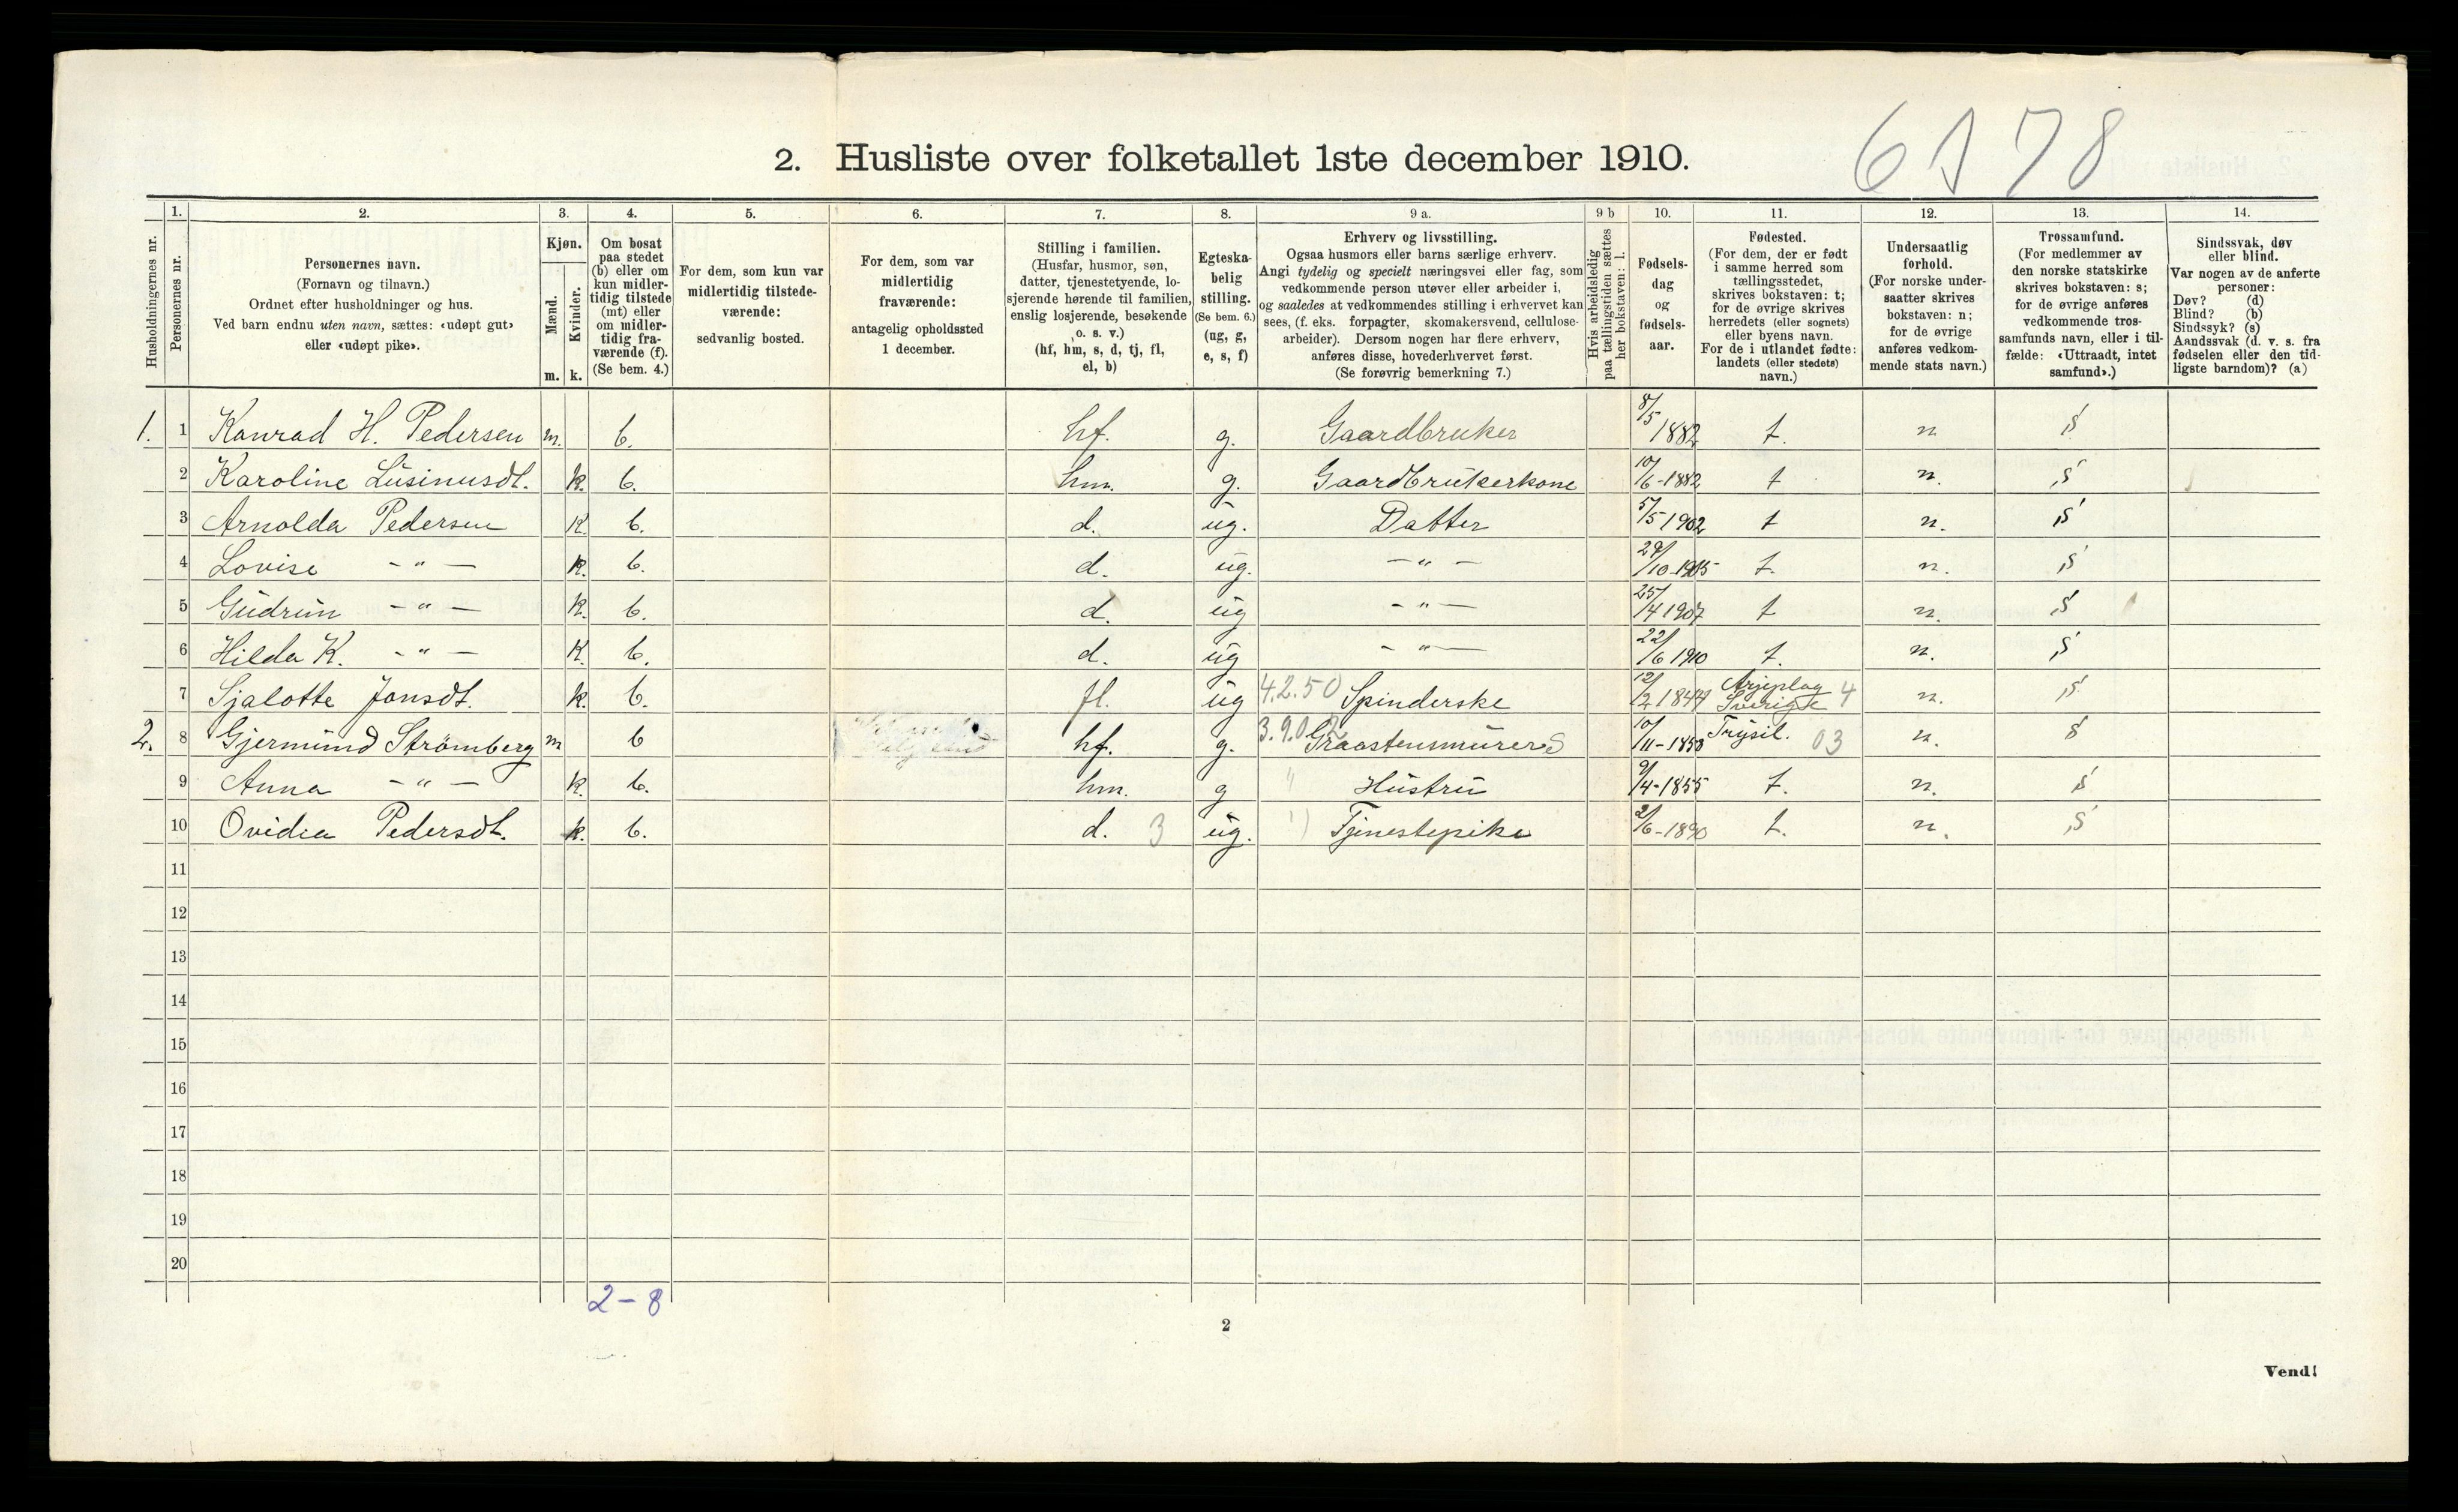 6 1 78
2. Husliste over folketallet 1ste december 1910.
1. 2. 3. 4. 5. 6. 7. 8. 9 a. 9 b 10. 11. 12. 13. 14.
Husholdningernes nr.
Personernes nr.
Personernes navn.
(Fornavn og tilnavn.)
Ordnet efter husholdninger og hus.
Ved barn endnu uten navn, sættes: «udøpt gut»
eller «udøpt pike».
Kjøn.
Mænd.
Kvinder.
m. k.
Om bosat
paa stedet
(b) eller om
kun midler-
tidig tilstede
(mt) eller
om midler-
tidig fra-
værende (f).
(Se bem. 4.)
For dem, som kun var
midlertidig tilstede-
værende:
sedvanlig bosted.
For dem, som var
midlertidig
fraværende:
antagelig opholdssted
1 december.
Stilling i familien.
(Husfar, husmor, søn,
datter, tjenestetyende, lo-
sjerende hørende til familien,
enslig losjerende, besøkende
o. s. v.)
(hf, hm, s, d, tj, fl,
el, b)
Egteska-
belig
stilling.
(Se bem. 6.)
(ug, g,
e, s, f)
Erhverv og livsstilling.
Ogsaa husmors eller barns særlige erhverv.
Angi tydelig og specielt næringsvei eller fag, som
vedkommende person utøver eller arbeider i,
og saaledes at vedkommendes stilling i erhvervet kan
sees, (f. eks. forpagter, skomakersvend, cellulose-
arbeider). Dersom nogen har flere erhverv,
anføres disse, hovederhvervet først.
(Se forøvrig bemerkning 7.)
Hvis arbeidsledig
paa tællingstiden sættes
her bokstaven: l.
Fødsels-
dag
og
fødsels-
aar.
Fødested.
(For dem, der er født
i samme herred som
tællingsstedet,
skrives bokstaven: t;
for de øvrige skrives
herredets (eller sognets)
eller byens navn.
For de i utlandet fødte:
landets (eller stedets)
navn.)
Undersaatlig
forhold.
(For norske under-
saatter skrives
bokstaven: n;
for de øvrige
anføres vedkom-
mende stats navn.)
Trossamfund.
(For medlemmer av
den norske statskirke
skrives bokstaven: s;
for de øvrige anføres
vedkommende tros-
samfunds navn, eller i til-
fælde: «Uttraadt, intet
samfund».)
Sindssvak, døv
eller blind.
Var nogen av de anførte
personer:
Døv? (d)
Blind? (b)
Sindssyk? (s)
Aandssvak (d. v. s. fra
fødselen eller den tid-
ligste barndom)? (a)
1. 1 Konrad H. Pedersen m. b. hf. g. Gaardbruker 8/5 1882 t. n s
2 Karoline Lusinusdt. k. b. hm. g. Gaardbrukerkone 10/6-1882 t n. s
3 Arnolda Pedersen k. b. d. ug. Datter 5/5 1902 t n. s
4 Lovise -"- k. b. d. ug. -"- 29/10-1905 t. n. s
5 Gudrun -"- k. b. d. ug -"- 25/4 1907 t n. s
6 Hilda K. -"- k. b. d. ug -"- 22/6 1910 t. n. s
7 Sjalotte Jonsdt. k. b. fl. ug 4.2.50 Spinderske 12/2 1844 Arjeplog Sverige 4 n. s
2. 8 Gjermund Strømberg m b hf. g. 3.9.02 Graastensmurer S 10/11-1858 Trysil. 03 n. s
9 Anna -"- k. b. hm. g " Hustru 9/4-1855 t. n. s
10 Ovidia Pedersdt. k. b. d. 3 ug. " Tjenestepike 2/6-1890 t. n. s
11
12
13
14
15
16
17
18
19
20
2-8
2
Vend!